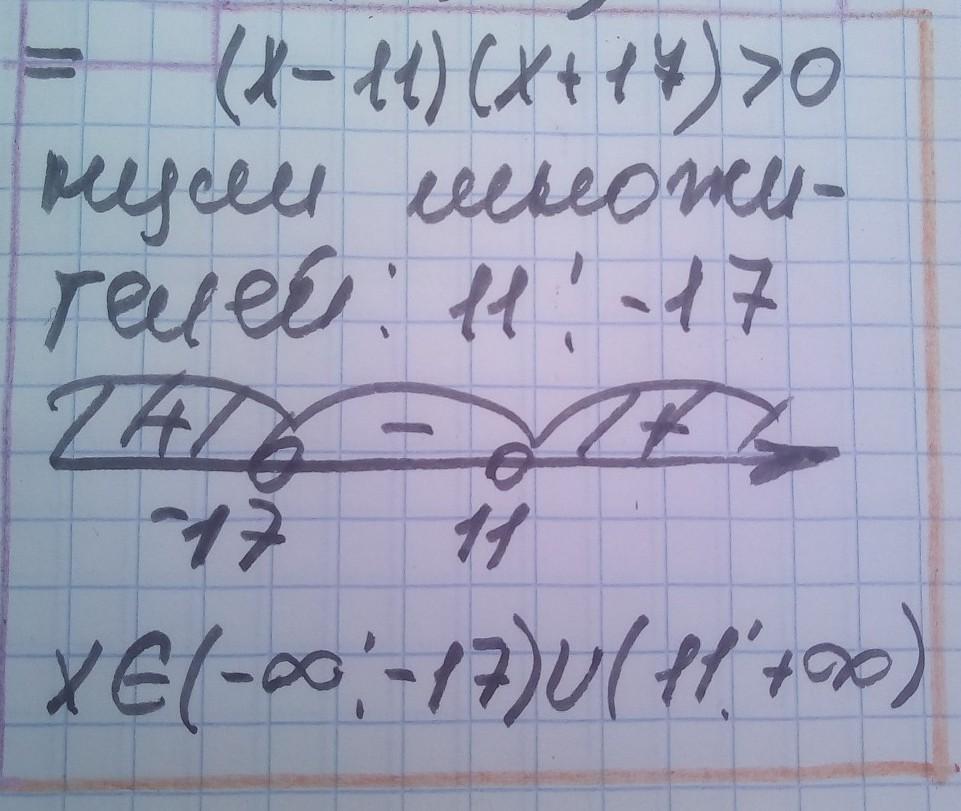 = (x-11)(x+17)>0
нули множи-
телей: 11; -17
+ - +
-17 11
x∈(-∞;-17)∪(11;+∞)